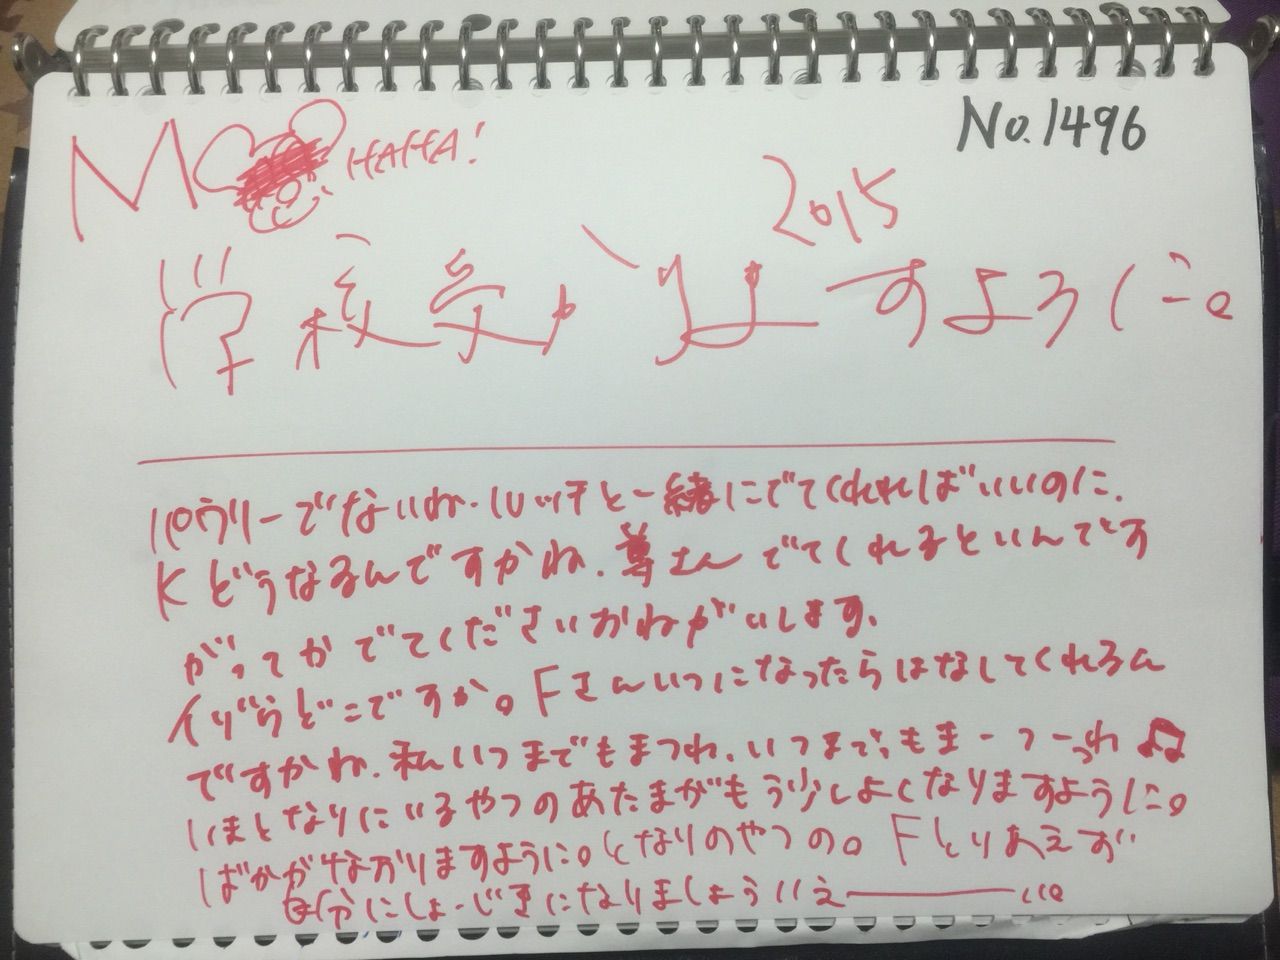 No.1496
M HAHA!
2015
学校受かりますよろに。
パウリーでないね.ルッチと一緒にでてくれればいいのに.
Kどうなるんですかね.尊さんでてくれるといんですが
がってかでてくださいおねがいします.
イザらどこですか。Fさんいつになったらはなしてくれるん
ですかね.私いつまでもまつね.いつまでもまーつーっね♫
いまとなりにいるやつのあたまがもう少しよくなりますように。
ばかがなおりますように。となりのやつの。Fとりあえず
自分にしょーじきになりましょういえ――い。